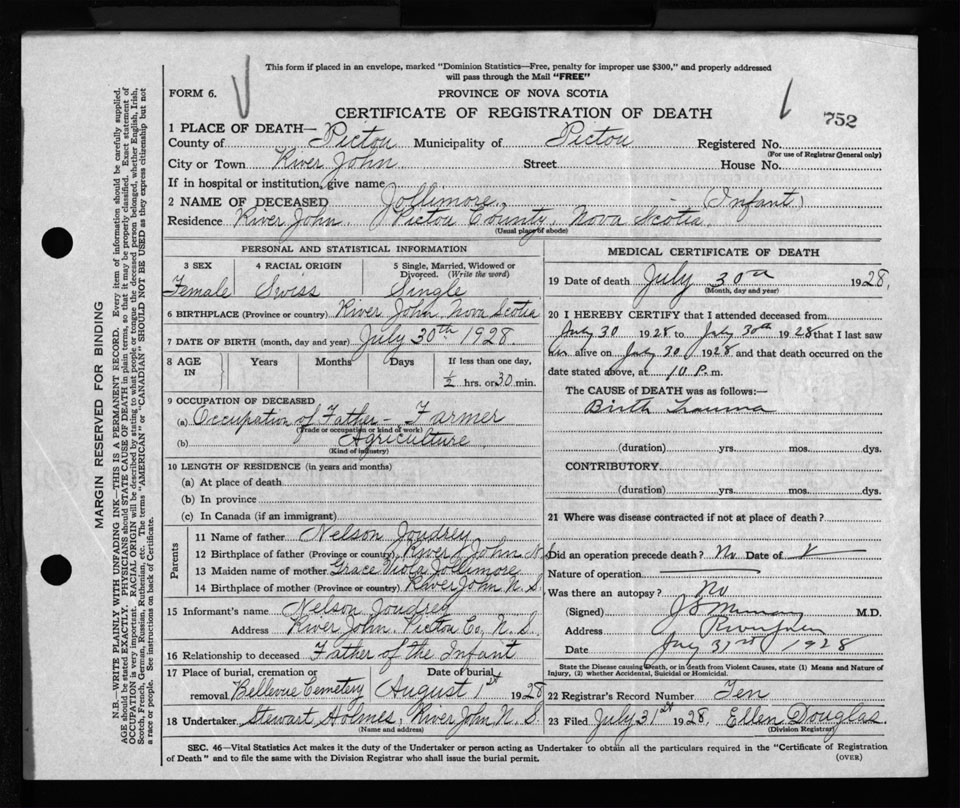 This form if placed in an envelope, marked "Dominion Statistics—Free, penalty for improper use $300," and properly addressed
will pass through the Mail "FREE"
FORM 6.
PROVINCE OF NOVA SCOTIA
CERTIFICATE OF REGISTRATION OF DEATH
752
1 PLACE OF DEATH—
County of Pictou Municipality of Pictou Registered No.
(For use of Registrar General only)
City or Town River John Street House No.
If in hospital or institution, give name
2 NAME OF DECEASED Jollimore. (Infant)
Residence River John. Pictou County, Nova Scotia.
(Usual place of abode)
PERSONAL AND STATISTICAL INFORMATION
3 SEX 4 RACIAL ORIGIN 5 Single, Married, Widowed or Divorced. (Write the word)
Female Swiss Single
6 BIRTHPLACE (Province or country) River John, Nova Scotia
7 DATE OF BIRTH (month, day and year) July 30th 1928.
8 AGE IN Years Months Days If less than one day,
½ hrs. or 30 min.
9 OCCUPATION OF DECEASED
(a) Occupation of Father - Farmer
(Trade or occupation or kind of work)
(b) Agriculture
(Kind of industry)
10 LENGTH OF RESIDENCE (in years and months)
(a) At place of death
(b) In province
(c) In Canada (if an immigrant)
Parents
11 Name of father Nelson Joudrey
12 Birthplace of father (Province or country) River John N.
13 Maiden name of mother Grace Viola Jollimore
14 Birthplace of mother (Province or country) River John N. S.
15 Informant's name Nelson Joudrey
Address River John, Pictou Co, N. S.
16 Relationship to deceased Father of the Infant
17 Place of burial, cremation or removal Bellevue Cemetery
Date of burial August 1st 1928
18 Undertaker Stewart Holmes, River John, N. S.
(Name and address)
MEDICAL CERTIFICATE OF DEATH
19 Date of death July 30th 1928,
(Month, day and year)
20 I HEREBY CERTIFY that I attended deceased from
July 30 1928 to July 30th 1928 that I last saw
alive on July 30 1928 and that death occurred on the
date stated above, at 10 P. m.
The CAUSE OF DEATH was as follows:—
Birth Trauma
(duration) yrs. mos. dys.
CONTRIBUTORY
(duration) yrs. mos. dys.
21 Where was disease contracted if not at place of death?
Did an operation precede death? No Date of
Nature of operation
Was there an autopsy? No
(Signed) M.D.
Address River John
Date July 31st 1928
State the Disease causing Death, or in death from Violent Causes, state (1) Means and Nature of
Injury, (2) whether Accidental, Suicidal or Homicidal.
22 Registrar's Record Number Ten
23 Filed July 31st 1928, Ellen Douglas.
(Division Registrar)
SEC. 46—Vital Statistics Act makes it the duty of the Undertaker or person acting as Undertaker to obtain all the particulars required in the "Certificate of Registration
of Death" and to file the same with the Division Registrar who shall issue the burial permit.
(OVER)
MARGIN RESERVED FOR BINDING
N.B.—WRITE PLAINLY WITH UNFADING INK—THIS IS A PERMANENT RECORD. Every item of information should be carefully supplied.
AGE should be stated EXACTLY. PHYSICIANS should STATE CAUSE OF DEATH in plain terms, so that it may be properly classified. Exact statement of
OCCUPATION is very important. RACIAL ORIGIN will be described by stating to what people or tongue the deceased person belonged, whether English, Irish,
Scotch, French, German, Russian, Ruthenian, etc. The terms "AMERICAN" or "CANADIAN" SHOULD NOT BE USED as they express citizenship but not
a race or people. See instructions on back of Certificate.